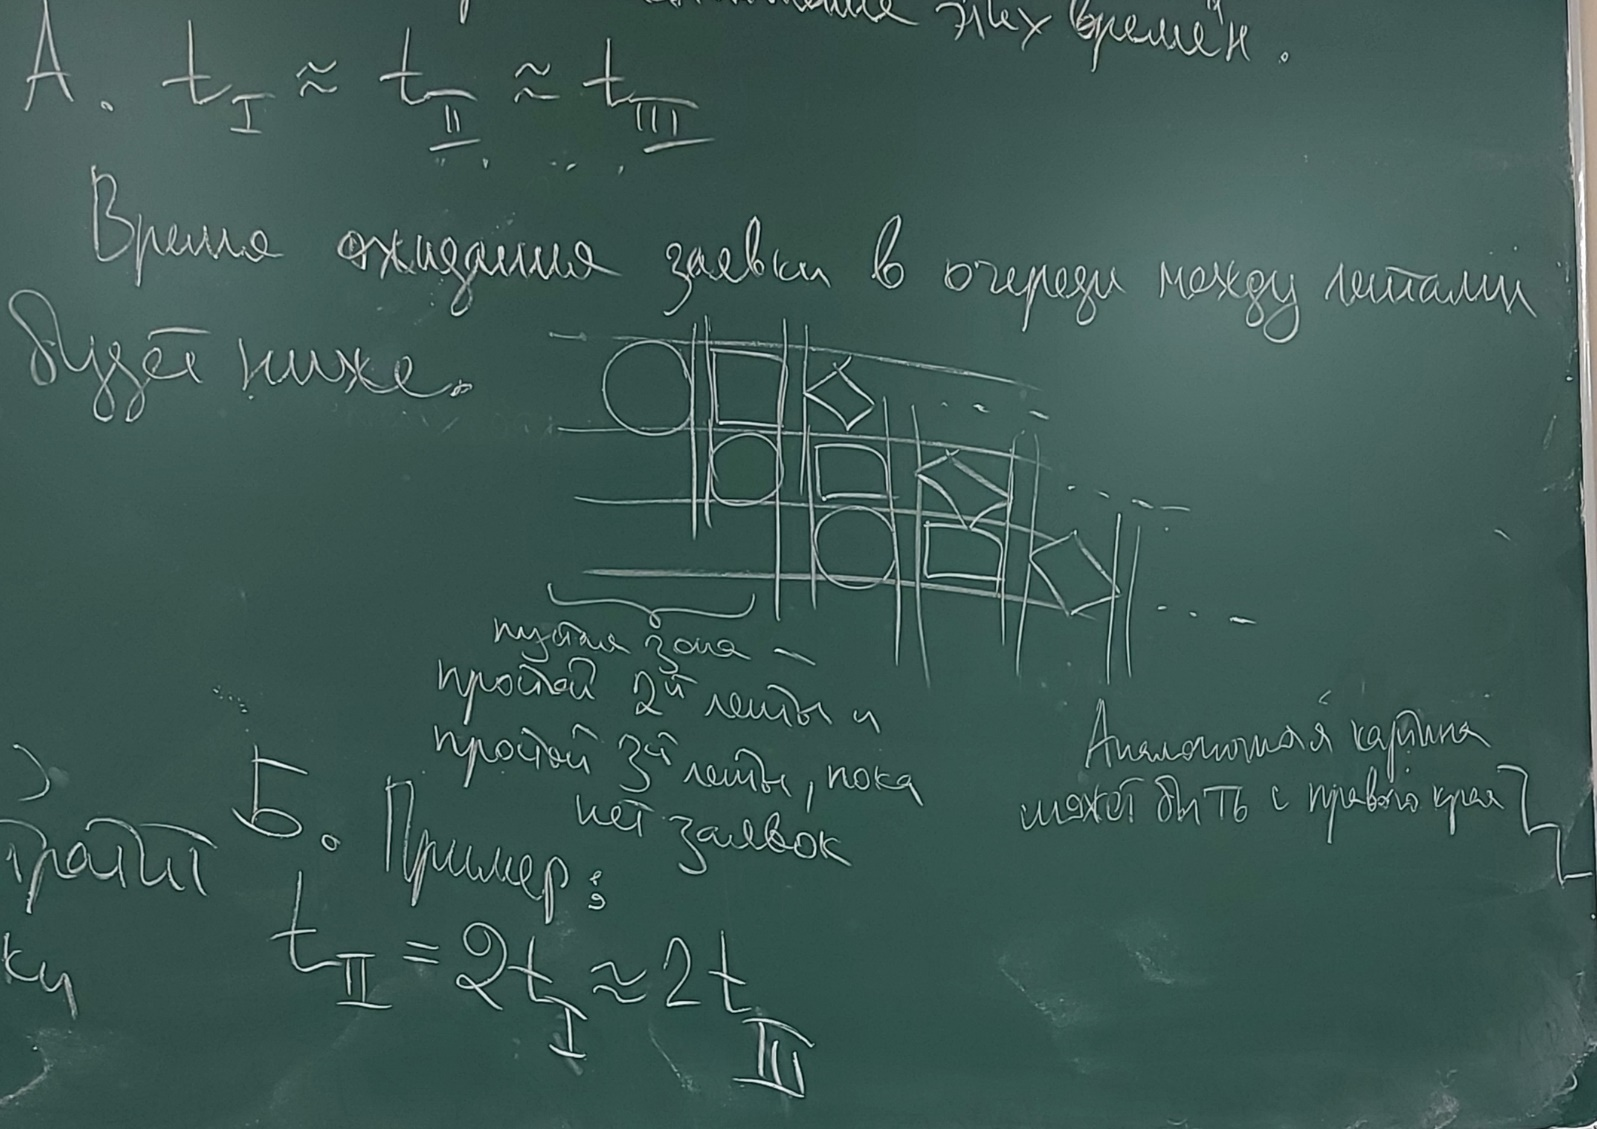 этих времён.
А. t_I ≈ t_II ≈ t_III
Время ожидания заявки в очереди между лентами
будет ниже.
пустая зона –
простой 2й ленты и
простой 3й ленты, пока
нет заявок
Аналогичная картина
может быть с правого края
тратит
ки
Б. Пример:
t_II = 2t_I ≈ 2t_III